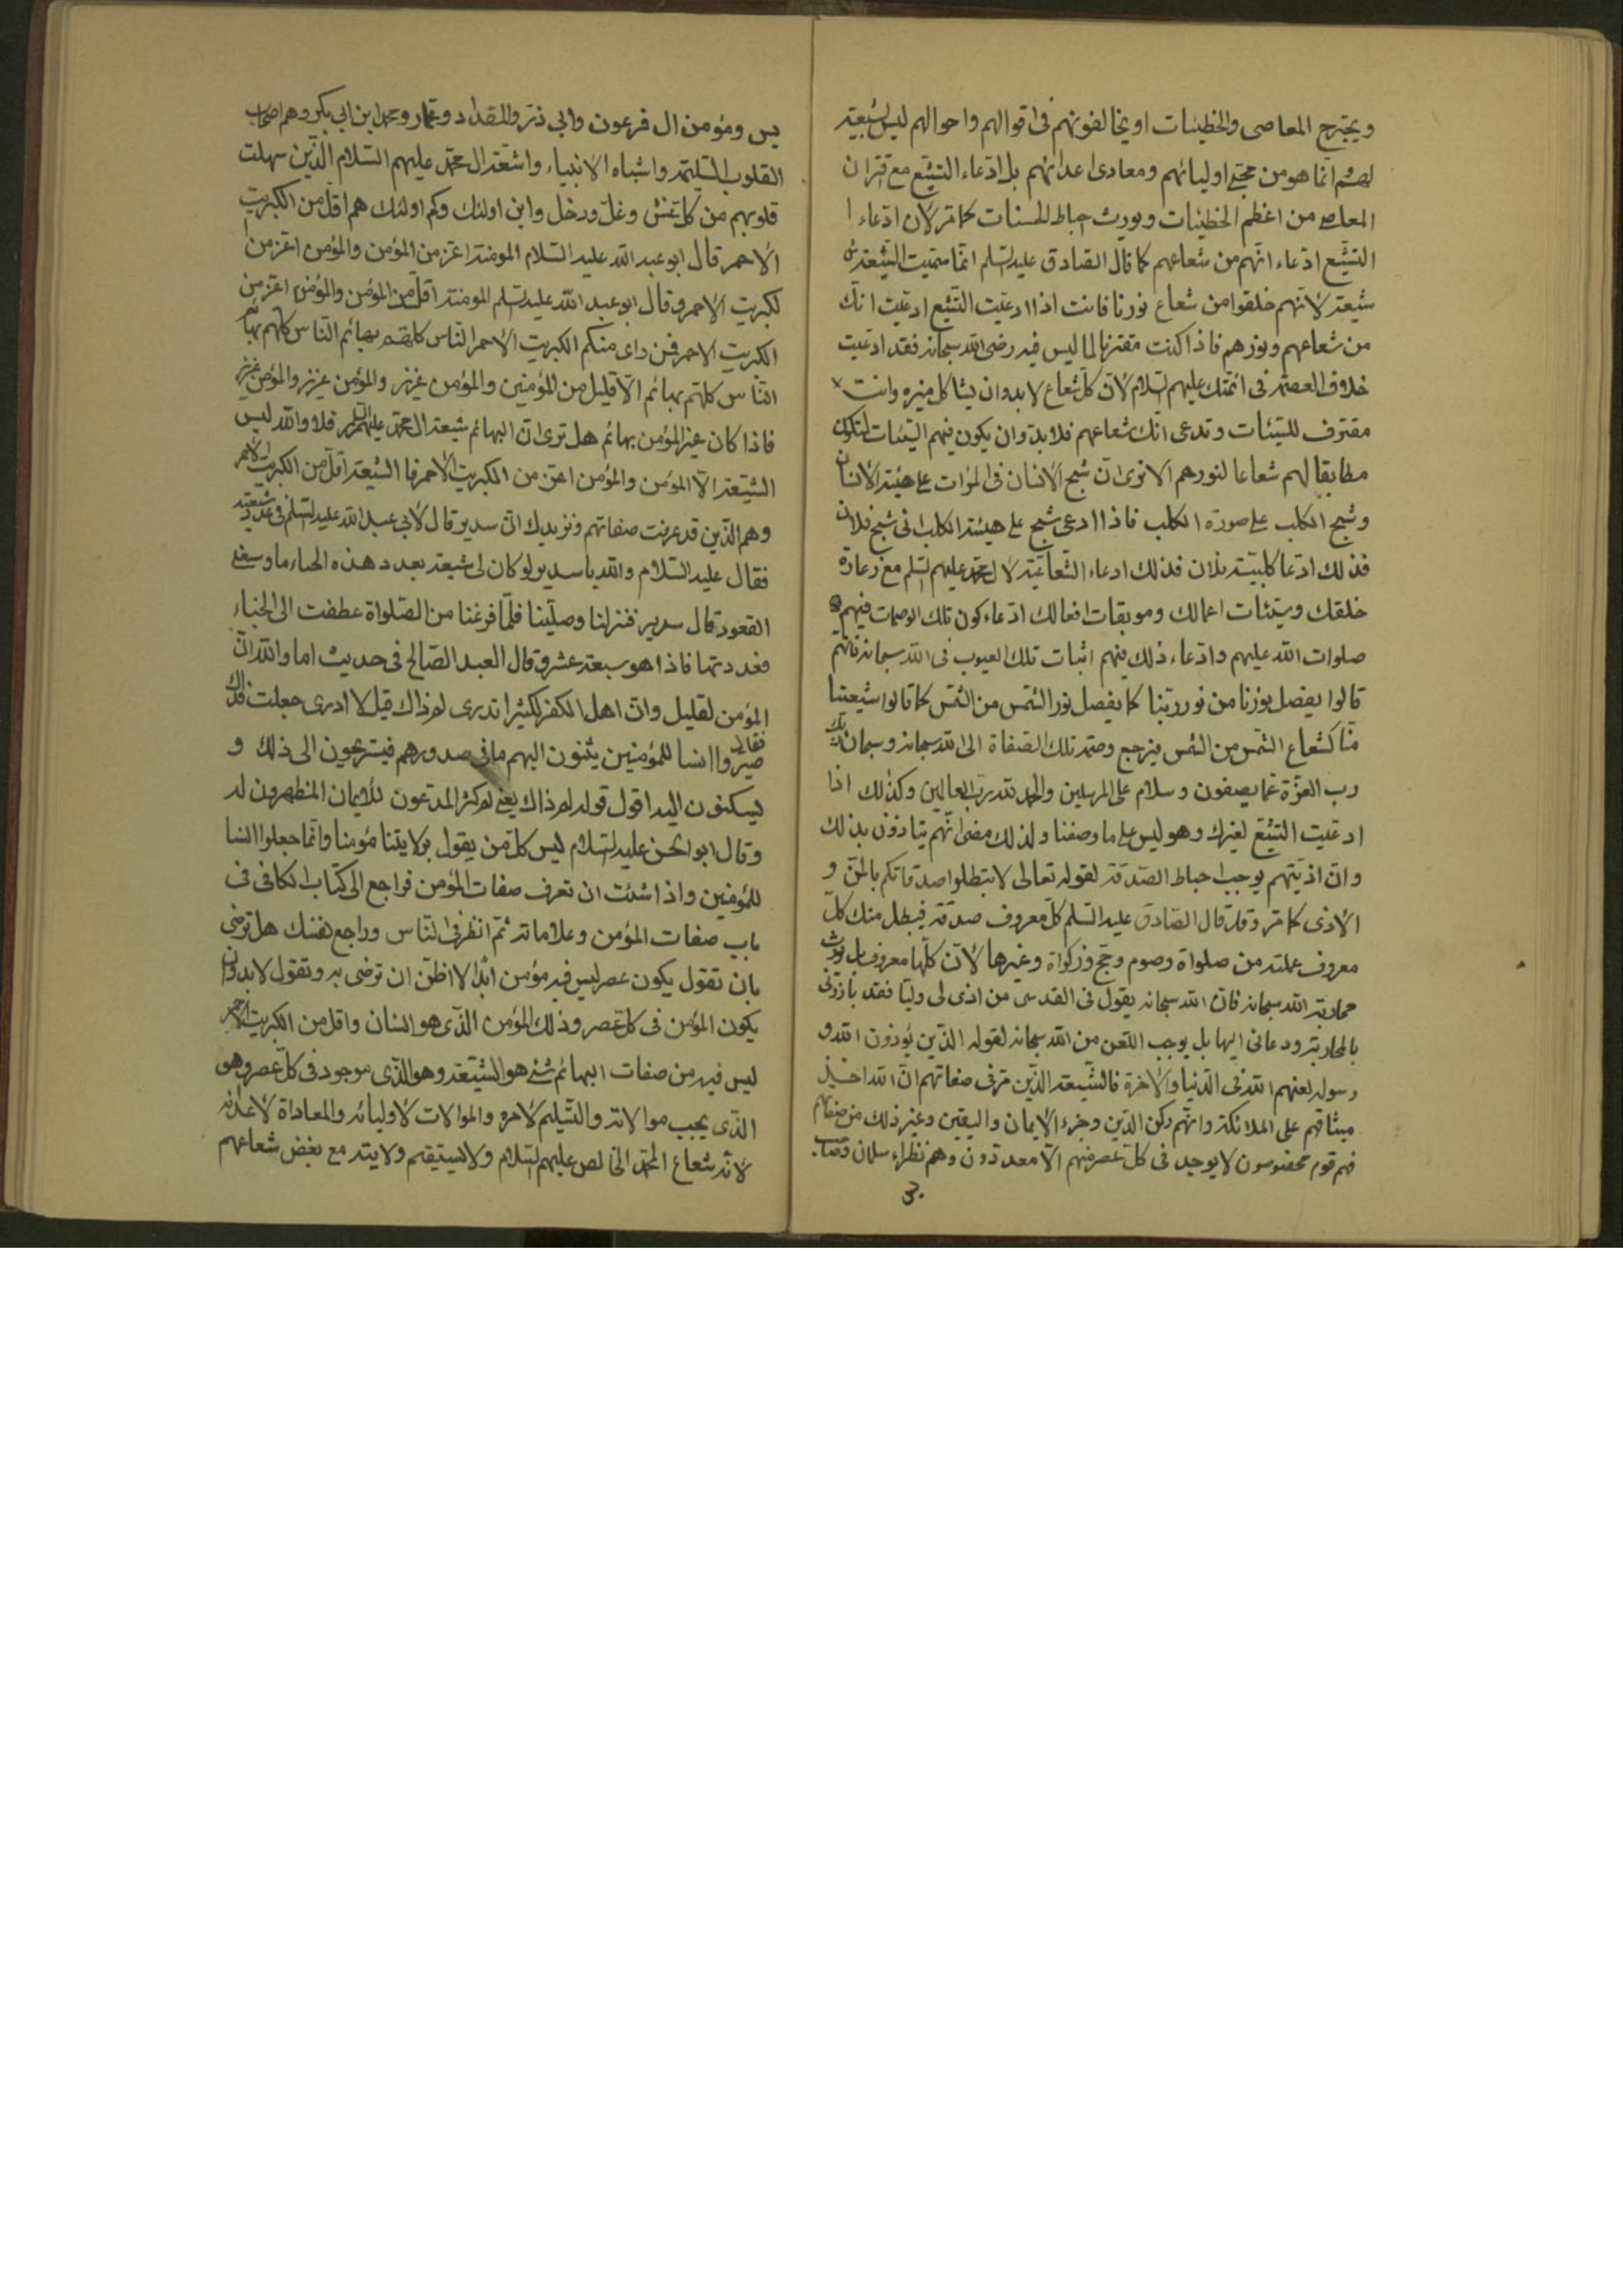 ويجترح المعاصى والخطيئات او يخالفونهم فى اقوالهم واحوالهم ليس بشيعة
لهم انما هو من محبى اوليائهم ومعادى اعدائهم بل ادعاء التشيع مع اقتران
المعاصى من اعظم الخطيئات ويورث حباط الحسنات كما مر لان ادعاء
التشيع ادعاء انهم من شعاعهم كما قال الصادق عليه السلم انما سميت الشيعة
شيعة لانهم خلقوا من شعاع نورنا فانت اذا ادعيت التشيع ادعيت انك
من شعاعهم ونورهم فاذا كنت مقترفا لما ليس فيه رضى الله سبحانه فقد ادعيت
خلاف العصمة فى ائمتك عليهم السلام لان كل شعاع لا بد وان يشاكل منيره وانت
مقترف للسيئات وتدعى انك شعاعهم فلا بد وان يكون فيهم السيئات لتكون
مطابقا لهم شعاعا لنورهم الا ترى ان شبح الانسان فى المرات على هيئة الانسان
وشبح الكلب على صورة الكلب فاذا ادعى شبح على هيئة الكلب انى شبح فلان
فذلك ادعا كلبية فلان فذلك ادعاء الشعاعية لال محمد عليهم السلم مع زعارة
خلقك وسيئات اعمالك وموبقات افعالك ادعاء كون تلك الوصمات فيهم
صلوات الله عليهم وادعاء ذلك فيهم اثبات تلك العيوب فى الله سبحانه فانهم
قالوا يفصل نورنا من نور ربنا كما يفصل نور الشمس من الشمس كما قالوا شيعتنا
منا كشعاع الشمس من الشمس فيرجع وصمة تلك الصفاة الى الله سبحانه وسبحان ربك
رب العزة عما يصفون وسلام على المرسلين والحمد لله رب العالمين وكذلك اذا
ادعيت التشيع لغيرك وهو ليس على ما وصفنا ولذلك مضى انهم يتاذون بذلك
وان اذيتهم يوجب احباط الصدقة لقوله تعالى لا تبطلوا صدقاتكم بالمن و
الاذى كما مر وقد قال الصادق عليه السلم كل معروف صدقة فيبطل منك كل
معروف عملته من صلواة وصوم وحج وزكواة وغيرها لان كلها معروف بل يورث
محاربة الله سبحانه فان الله سبحانه يقول فى القدسى من اذى لى وليا فقد بارزنى
بالمحاربة ودعانى اليها بل يوجب اللعن من الله سبحانه لقوله الذين يؤذون الله و
رسوله لعنهم الله فى الدنيا والاخرة فالشيعة الذين مر فى صفاتهم ان الله اخذ
ميثاقهم على الملائكة وانهم ركن الدين وجزء الايمان واليقين وغير ذلك من صفاتهم
فهم قوم مخصوصون لا يوجد فى كل عصر منهم الا معدودون وهم نظراء سلمان وصاحب
يس ومؤمن ال فرعون وابي ذر والمقداد وعمار ومحمد ابن ابي بكر وهم اصحاب
القلوب السليمة واشباه الانبياء واشعة ال محمد عليهم السلام الذين سهلت
قلوبهم من كل غش وغل ودخل واين اولئك وكم اولئك هم اقل من الكبريت
الاحمر قال ابو عبد الله عليه السلام المومنة اعز من المؤمن والمؤمن اعز من
لكبريت الاحمر وقال ابو عبد الله عليه السلم المومنة اقل من المؤمن والمؤمن اعز من
الكبريت الاحمر فمن راى منكم الكبريت الاحمر الناس كلهم بهائم الناس كلهم بهائم
الناس كلهم بهائم الا قليل من المؤمنين والمؤمن عزيز والمؤمن عزيز والمؤمن عزيز
فاذا كان غير المؤمن بهائم هل ترى ان البهائم شيعة ال محمد عليهم السلام فلا والله ليس
الشيعة الا المؤمن والمؤمن اعز من الكبريت الاحمر فا الشيعة اقل من الكبريت الاحمر
وهم الذين قد عرفت صفاتهم ونزيدك ان سدير قال لابي عبد الله عليه السلم فى عدد شيعته
فقال عليه السلام والله يا سدير لو كان لى شيعة بعدد هذه الجداء ما وسعنى
القعود قال سدير فنزلنا وصلينا فلما فرغنا من الصلواة عطفت الى الجداء
فعددتها فاذا هو سبعة عشر وقال العبد الصالح فى حديث اما والله ان
المؤمن لقليل وان اهل الكفر لكثير اتدرى لم ذاك قيل لا ادرى جعلت فداك
فقال صيروا انسا للمؤمنين يبثون اليهم ما فى صدورهم فيستريحون الى ذلك و
يسكنون اليه اقول قوله لم ذاك يعنى لم كثر المدعون للايمان المظهرون له
وقال ابو الحسن عليه السلام ليس كل من يقول بولايتنا مؤمنا وانما جعلوا انسا
للمؤمنين واذا شئت ان تعرف صفات المؤمن فراجع الى كتاب الكافى فى
باب صفات المؤمن وعلاماته ثم انظر فى الناس وراجع نفسك هل ترضى
بان تقول يكون عصر ليس فيه مؤمن ابدا لا اظن ان ترضى به وتقول لا بد وان
يكون المؤمن فى كل عصر وذلك المؤمن الذى هو انسان واقل من الكبريت الاحمر
ليس فيه من صفات البهائم شئ هو الشيعة وهو الذى موجود فى كل عصر وهو
الذى يجب موالاته والتسليم لامره والموالات لاوليائه والمعاداة لاعدائه
لانه شعاع المحمد الخالص عليهم السلام ولا يستقيم ولايته مع بغض شعاعهم